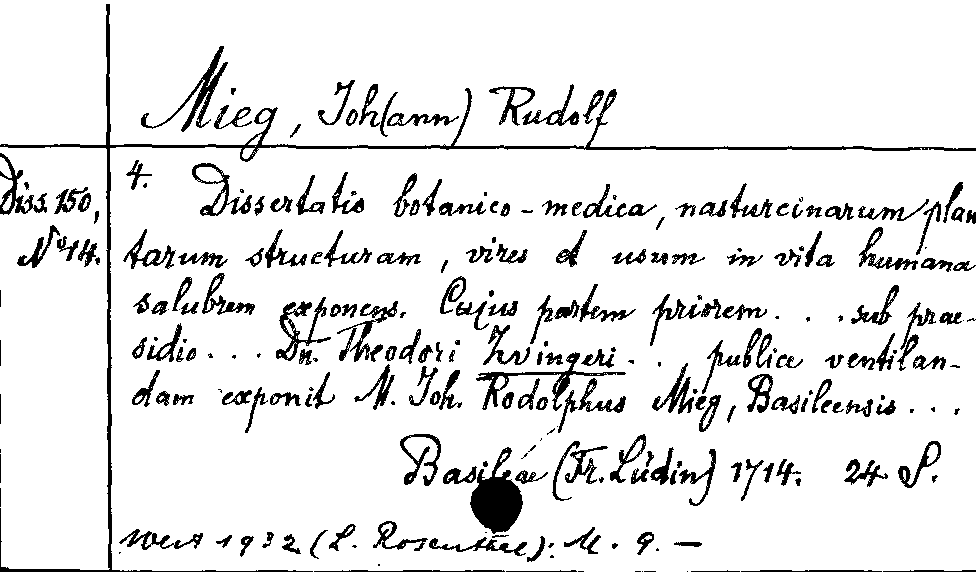 Mieg, Joh(ann) Rudolf
Diss. 150,
No 14.
4. Dissertatio botanico-medica, nasturcinarum plan
tarum structuram, vires et usum in vita humana
salubrem exponens. Cujus partem priorem . . . sub prae-
sidio . . . Dn. Theodori Zvingeri . . publice ventilan-
dam exponit M. Joh. Rodolphus Mieg, Basileensis . . .
Basileae (Fr. Lüdin) 1714. 24 S.
Wert 1932 (L. Rosenthal): M. 9. —